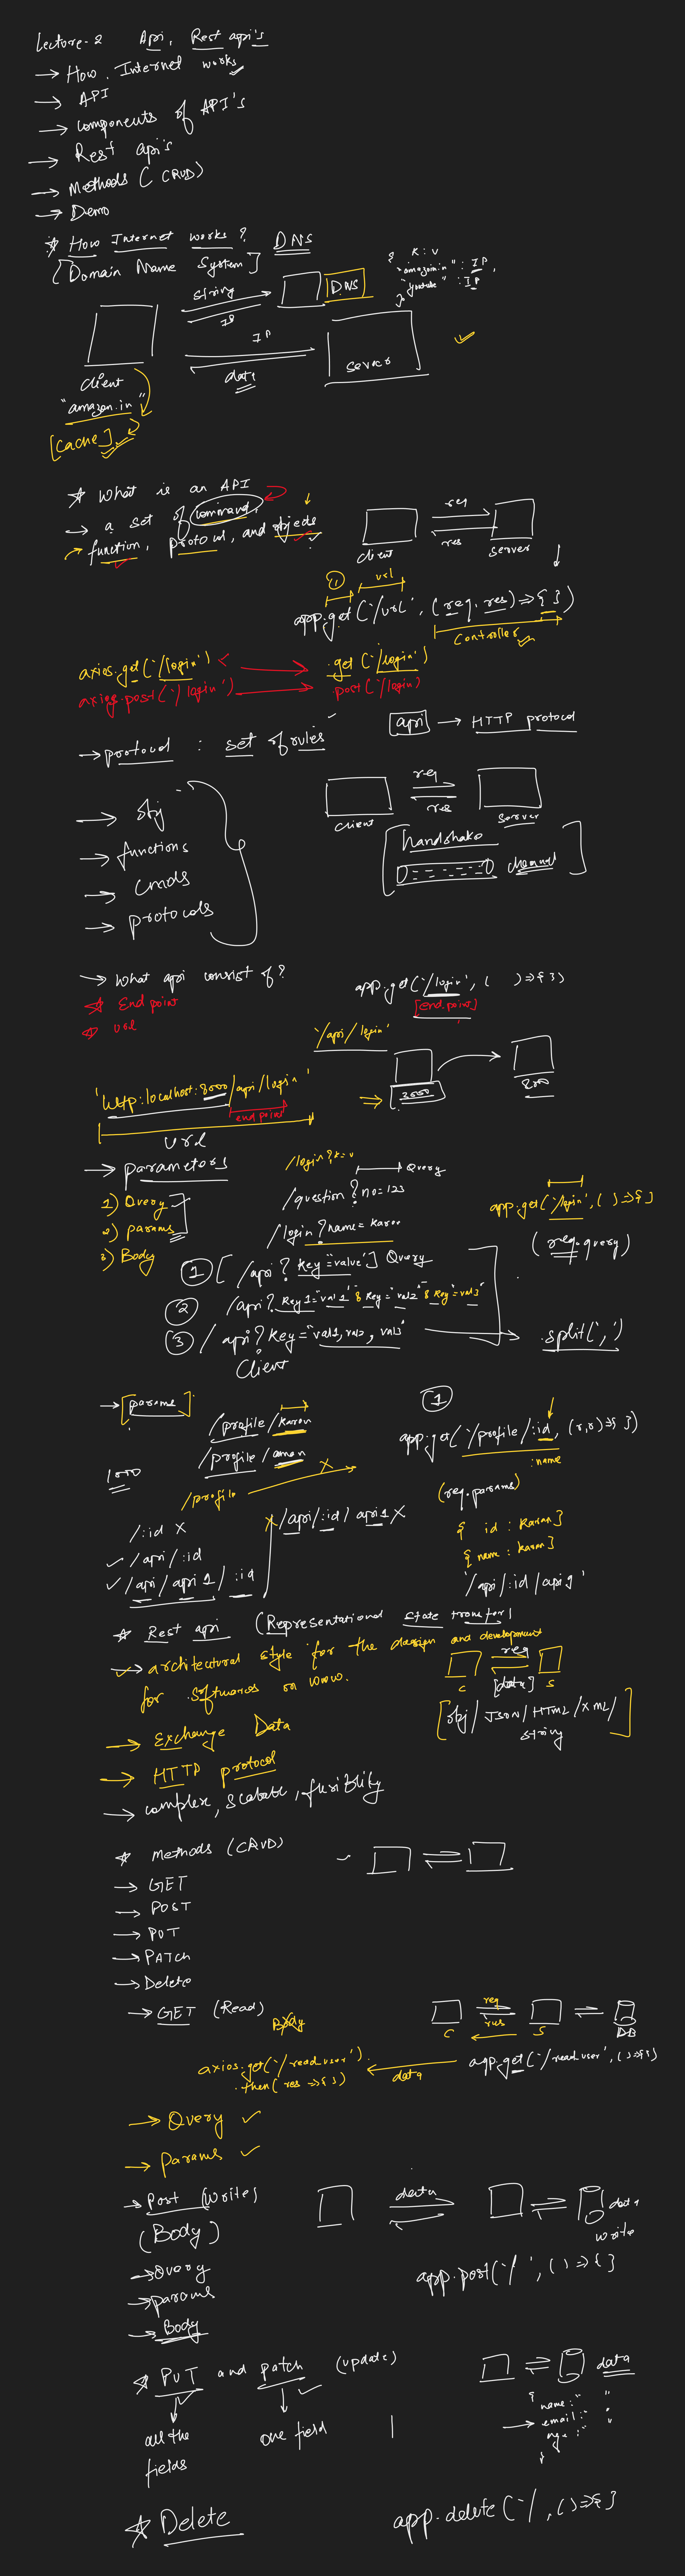 Lecture-2 Api, Rest api's
→ How Internet works
→ API
→ components of API's
→ Rest api's
→ Methods (CRUD)
→ Demo
* How Internet works? DNS
[Domain Name System]
K : V
{ "amazon.in" : IP,
"youtube" : IP
}
string
DNS
IP
IP
data
server
client
"amazon.in"
[cache]
* What is an API
→ a set of command,
function, protocol, and objects
req
res
client
server
① url
app.get('/url', (req, res) => { })
controller
axios.get('/login')
.get('/login')
axios.post('/login')
post('/login)
api → HTTP protocol
→ protocol : set of rules
req
res
client
server
→ obj
→ functions
→ cmds
→ protocols
handshake
channel
→ What api consist of?
* End point
* url
app.get('/login', ( ) => { })
[end.point]
'/api/login'
'http:localhost:8000/api/login'
end point
url
→ parameters
1) Query
2) params
3) Body
/login?k=v
Query
/question?no=123
/login?name=karan
app.get('/login', ( ) => { }
(req.query)
① [ /api? key="value" ] Query
② /api? key1="val1" & key="val2" & key="val3"
③ / api? key="val1, val2, val3"
.split(',')
Client
→ [params]
/profile/karan
/profile/aman
/profile X
①
app.get('/profile/:id, (r,r) => { })
:name
(req.params)
{ id : Karan }
{ name : karan }
'/api/:id/api1'
/:id X
✓ /api/:id
✓ /api/api1/:id
X /api/:id/api1 X
* Rest api (Representational state transfer)
→ architectural style for the design and development
for softwares on www.
req
C [data] S
[obj/JSON/HTML/XML/
string]
→ Exchange Data
→ HTTP protocol
→ complex, scalable, flexiblity
* methods (CRUD)
→ GET
→ POST
→ PUT
→ PATCH
→ Delete
→ GET (Read)
Body
req
res
C S DB
axios.get('/read_user').
.then(res => { })
data
app.get('/read_user', ( ) => { })
→ Query ✓
→ Params ✓
→ Post (Write)
(Body)
→ Query
→ params
→ Body
data
data
write
app.post('/ ', ( ) => { }
* PUT and patch (update)
all the
fields
one field
data
{ name : " "
→ email : "
age : "
}
* Delete
app.delete('/, ( ) => { }